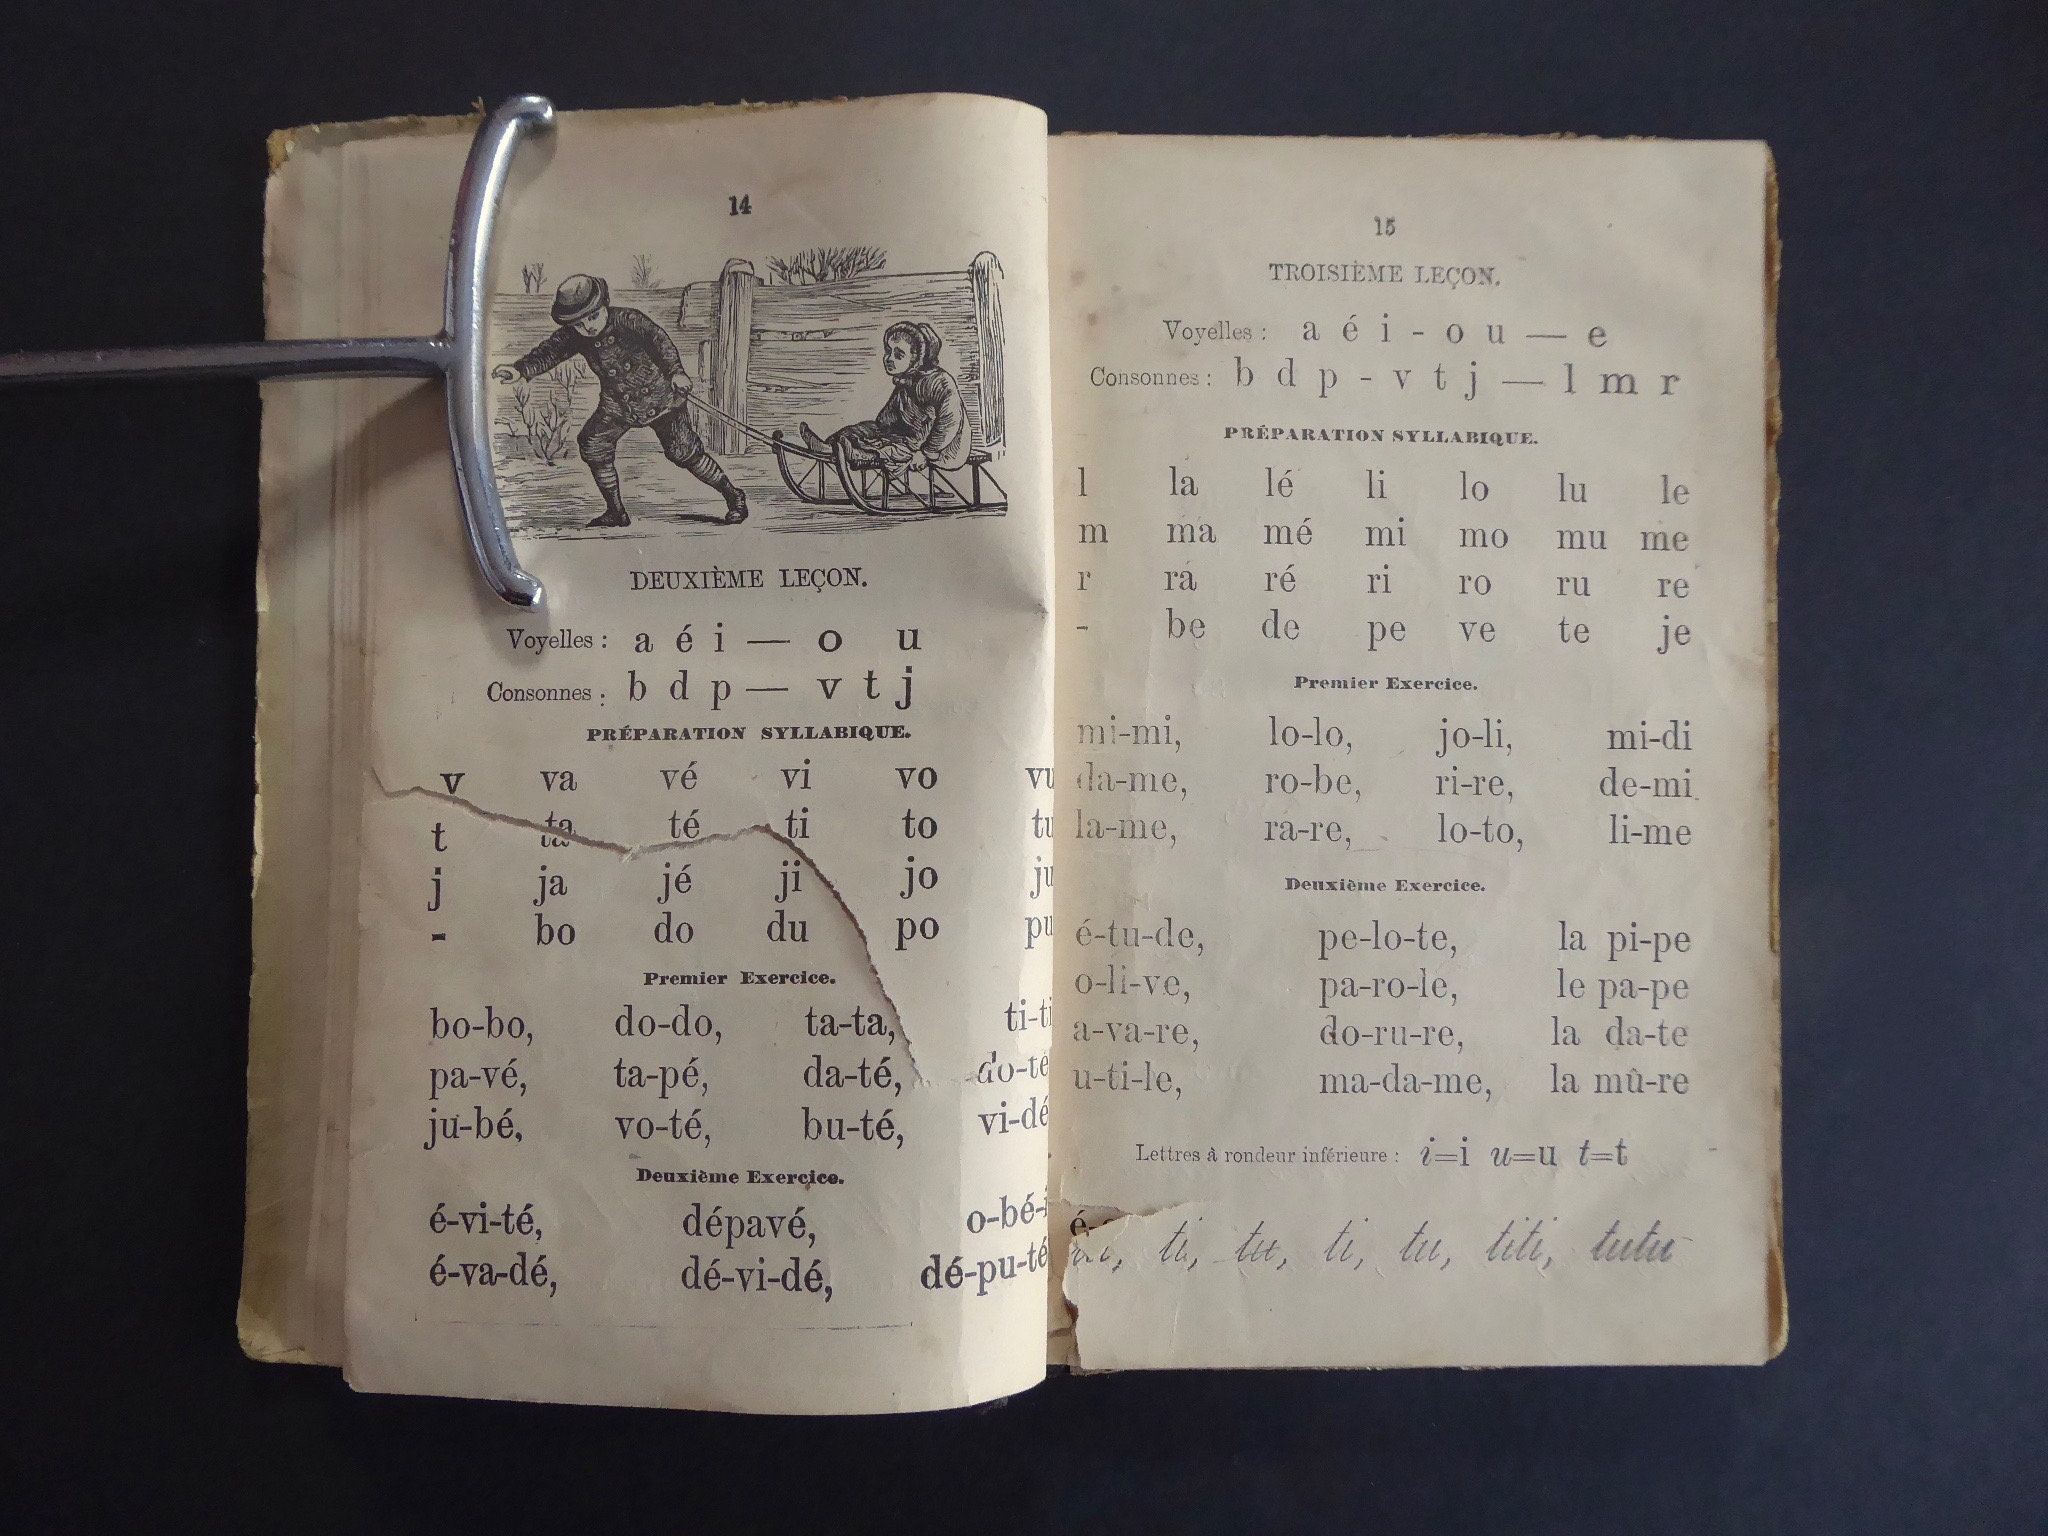 14
DEUXIÈME LEÇON.
Voyelles : a é i — o u
Consonnes : b d p — v t j
PRÉPARATION SYLLABIQUE.
v va vé vi vo vu
t ta té ti to tu
j ja jé ji jo ju
- bo do du po pu
Premier Exercice.
bo-bo, do-do, ta-ta, ti-ti
pa-vé, ta-pé, da-té, do-té
ju-bé, vo-té, bu-té, vi-dé
Deuxième Exercice.
é-vi-té, dépavé, o-bé-i
é-va-dé, dé-vi-dé, dé-pu-té
15
TROISIÈME LEÇON.
Voyelles : a é i - o u — e
Consonnes : b d p - v t j — l m r
PRÉPARATION SYLLABIQUE.
l la lé li lo lu le
m ma mé mi mo mu me
r ra ré ri ro ru re
- be de pe ve te je
Premier Exercice.
mi-mi, lo-lo, jo-li, mi-di
da-me, ro-be, ri-re, de-mi
la-me, ra-re, lo-to, li-me
Deuxième Exercice.
é-tu-de, pe-lo-te, la pi-pe
o-li-ve, pa-ro-le, le pa-pe
a-va-re, do-ru-re, la da-te
u-ti-le, ma-da-me, la mû-re
Lettres à rondeur inférieure : i=i u=u t=t
ti, tu, ti, tu, titi, tutu